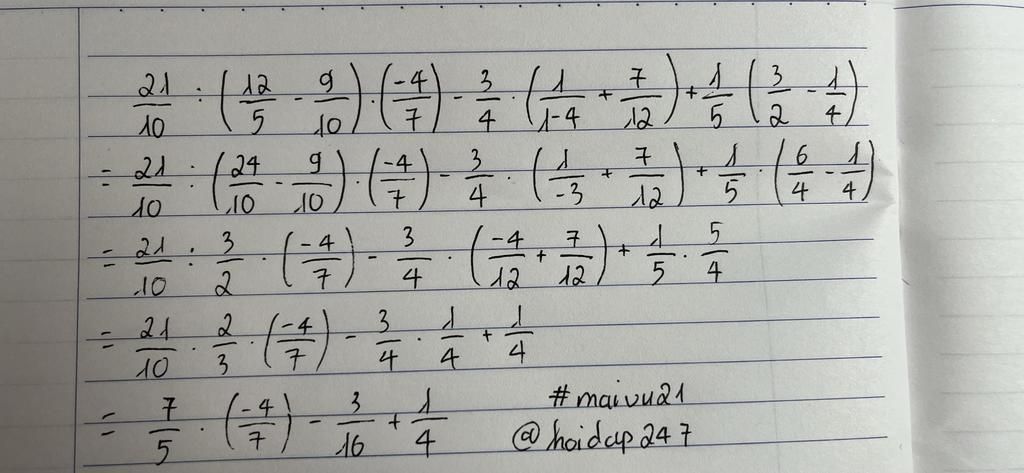 21/10 : (12/5 - 9/10) . (-4/7) - 3/4 . (1/1-4 + 7/12) + 1/5 (3/2 - 1/4)
= 21/10 : (24/10 - 9/10) . (-4/7) - 3/4 . (1/-3 + 7/12) + 1/5 . (6/4 - 1/4)
= 21/10 : 3/2 . (-4/7) - 3/4 . (-4/12 + 7/12) + 1/5 . 5/4
= 21/10 . 2/3 . (-4/7) - 3/4 . 1/4 + 1/4
= 7/5 . (-4/7) - 3/16 + 1/4 #maivu21
@hoidap247